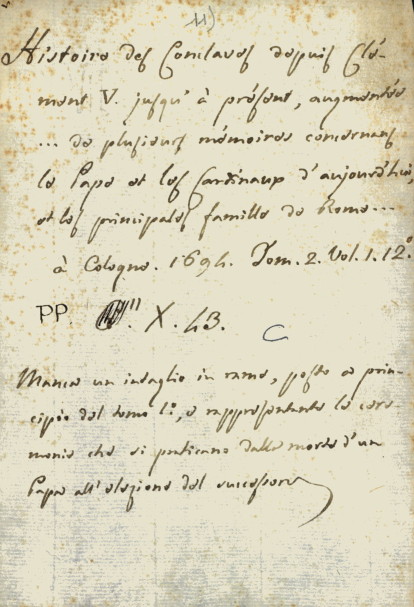 11)
Histoire des Conclaves depuis Clé-
ment V. jusqu'à présent, augmentée
... de plusieurs mémoires concernans
le Pape et les Cardinaux d'aujourd'hui
et les principales famille de Rome...
à Cologne. 1694. Tom. 2. Vol. 1. 12.°
PP. X. 43.
C
Manca un intaglio in rame, posto a prin-
cipio del tomo I.°, e rappresentante le cere-
monie che si praticano dalla morte d'un
Papa all'elezione del successore